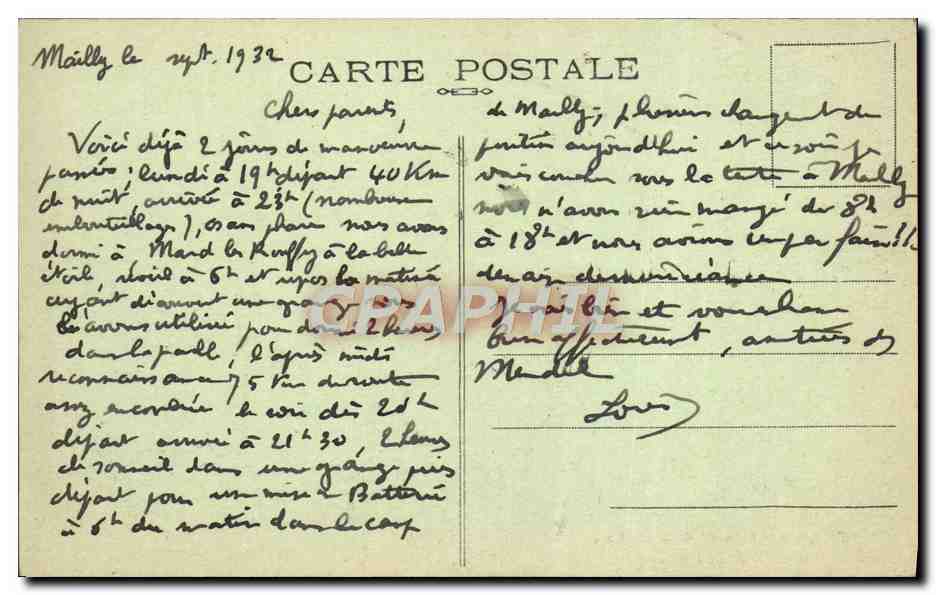 Mailly le sept. 1932
CARTE POSTALE
Chers parents,
Voici déjà 2 jours de manoeuvre
passés: lundi à 19h départ 40 Km
de nuit, arrivée à 23h (nombreux
embouteillages), sans phare nous avons
dormi à à la belle
étoile, réveil à 6h et repos la matinée
ayant découvert une grange nous
les avons utilisé pour dormir 2 heures
dans la paille, l'après midi
reconnaissance 75 Km de route
assez encombrée le soir dès 20h
départ arrivée à 21h30, 2 heures
de sommeil dans une grange puis
départ pour une mise en Batterie
à 6h du matin dans le camp
de Mailly, plusieurs changent de
position aujourd'hui et ce soir je
vais coucher sous la tente à Mailly
nous n'avons rien mangé de 8h
à 18h et nous avions un peu faim!!

Je vais bien et vous
bien affectueusement, amitiés de
Louis
CPAPHIL